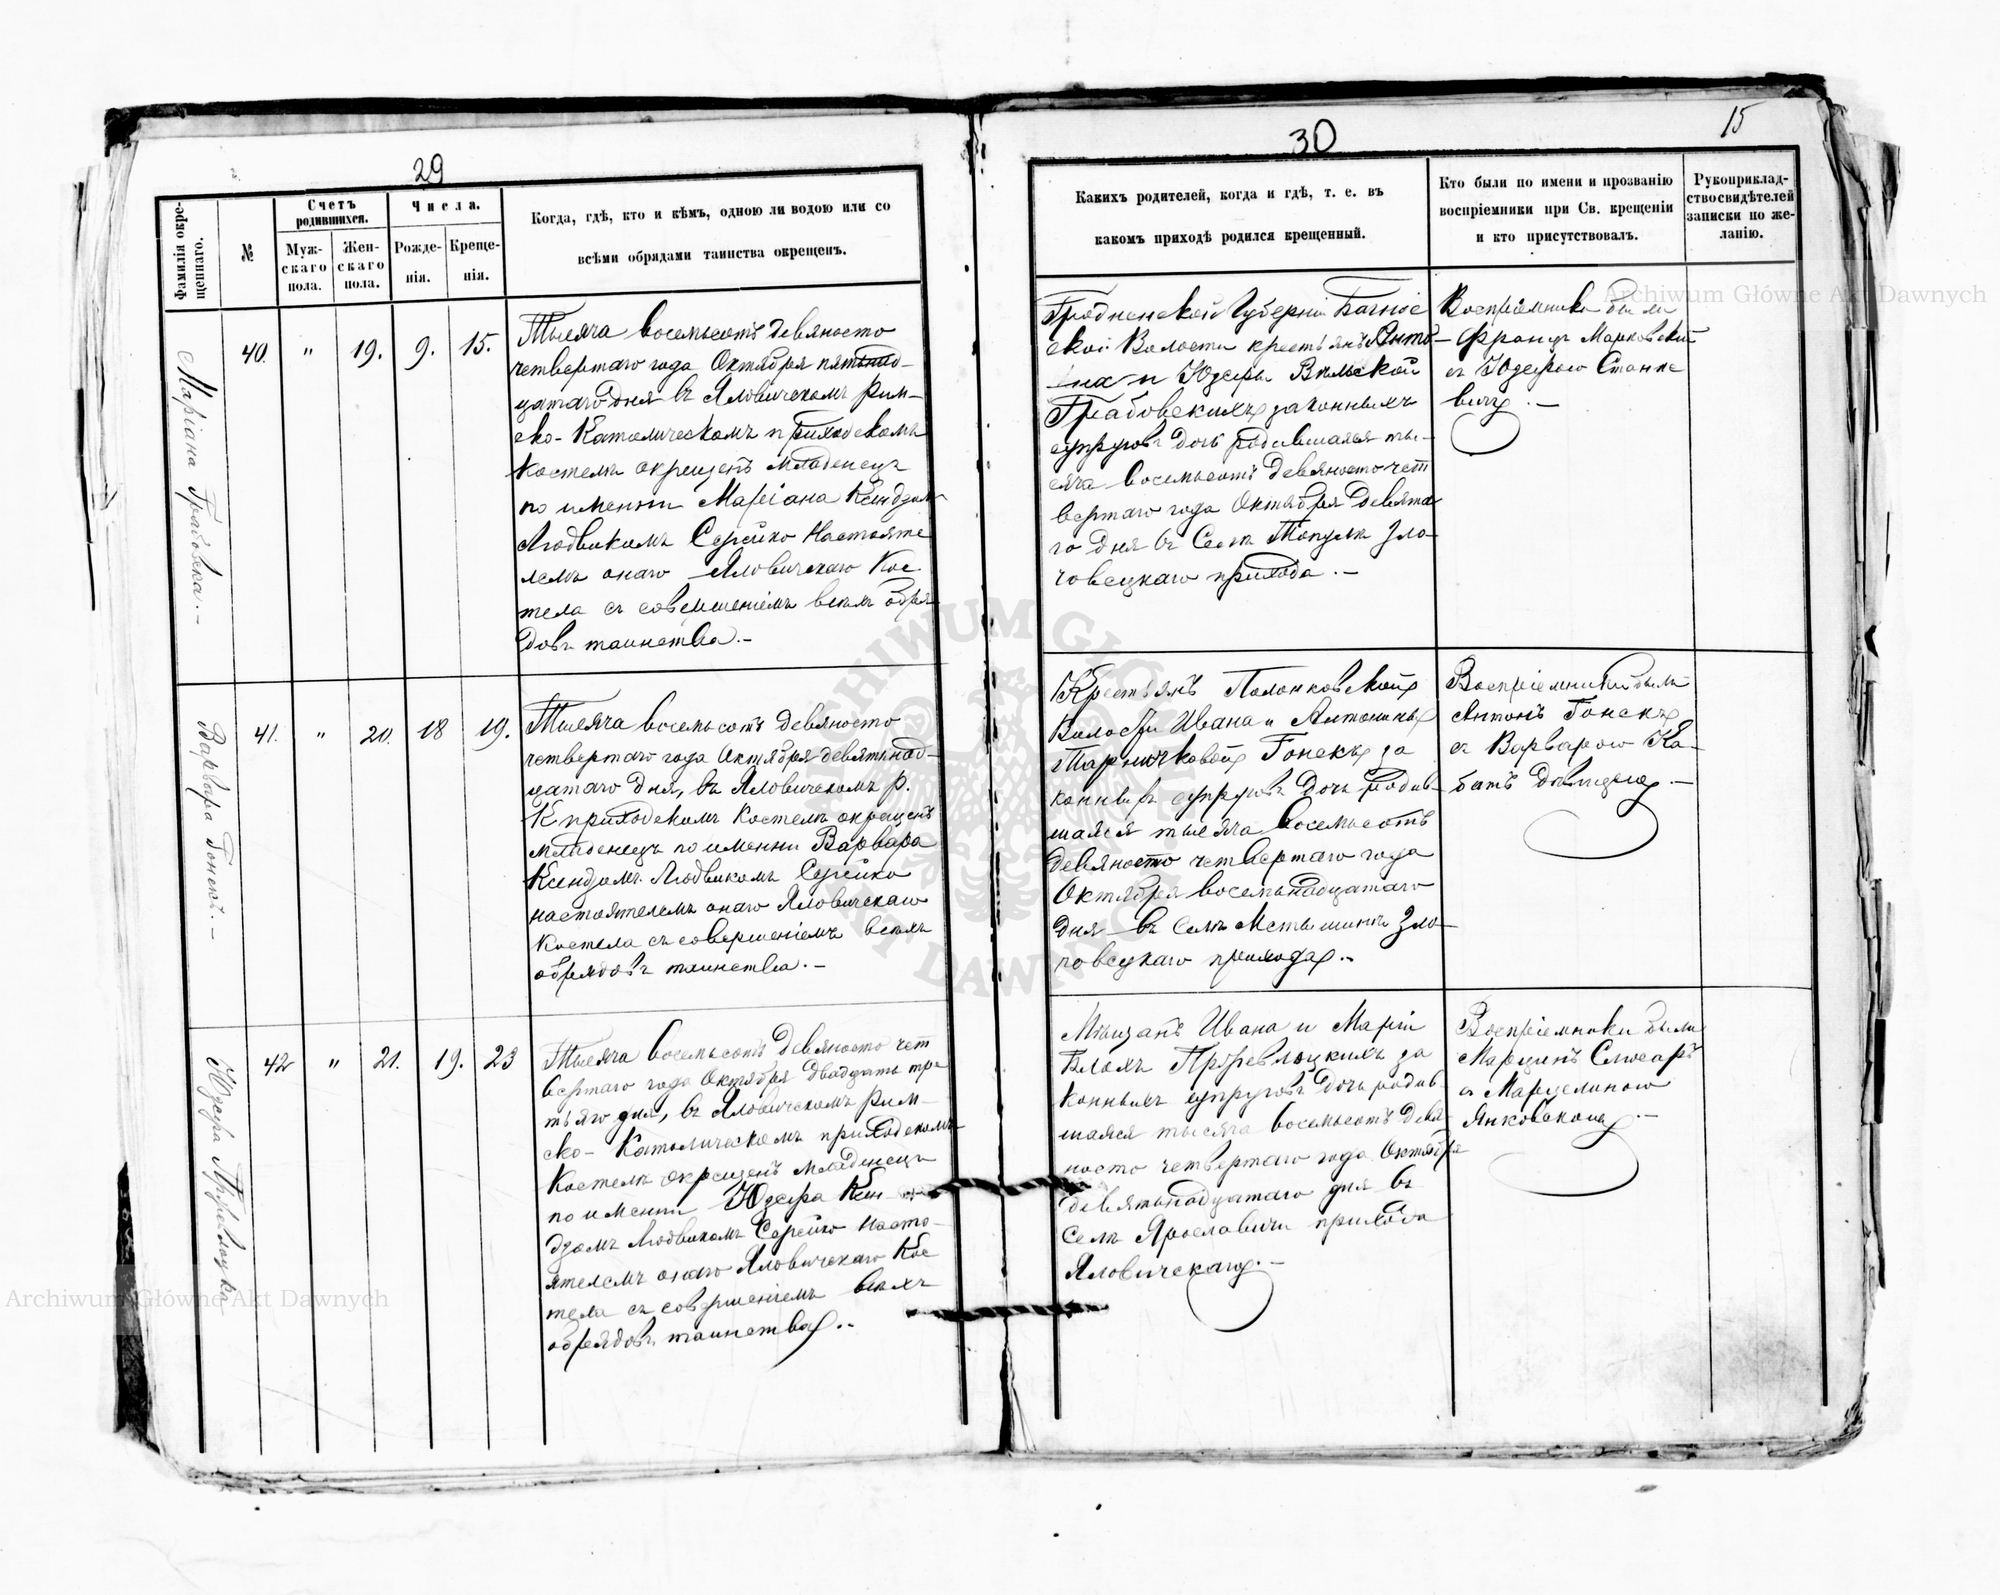 29
Фамилія окре-
щеннаго.
№
Счетъ
родившихся.
Муж-
скаго
пола.
Жен-
скаго
пола.
Числа.
Рожде-
нія.
Креще-
нія.
Когда, гдѣ, кто и кѣмъ, одною ли водою или со
всѣми обрядами таинства окрещенъ.
Маріана Грабовска.-
40.
"
19.
9.
15.
Тысяча восемьсотъ девяносто
четвертаго года Октября пятьнад-
цатаго дня въ Яловичскомъ Рим-
ско-Католическомъ приходскомъ
Костелѣ окрещенъ младенецъ
по имени Маріана Ксендзомъ
Людвикомъ Сересйко Настояте
лемъ онаго Яловичскаго Кос
тела съ совершеніемъ всѣхъ обря
довъ таинства.-
Варвара Гонсекъ.-
41.
"
20.
18
19.
Тысяча восемьсотъ девяносто
четвертаго года Октября девятнад-
цатаго дня, въ Яловичскомъ Р.
К приходскомъ Костелѣ окрещенъ
младенецъ по имени Варвара
Ксендзомъ Людвикомъ
настоятелемъ онаго Яловичскаго
Костела съ совершеніемъ всѣхъ
обрядовъ таинства.-
Юзефа
42
"
21.
19.
23
Тысяча восемьсотъ девяносто чет
вертаго года Октября двадцать тре
тьяго дня, въ Яловичскомъ Рим-
ско-Католическомъ приходскомъ
Костелѣ окрещенъ младенецъ
по имени Юзефа Ксен-
дзомъ Людвикомъ Насто-
ятелемъ онаго Яловичскаго Кос
тела съ совершеніемъ всѣхъ
обрядовъ таинства.-
30
15
Какихъ родителей, когда и гдѣ, т. е. въ
какомъ приходѣ родился крещенный.
Кто были по имени и прозванію
воспріемники при Св. крещеніи
и кто присутствовалъ.
Рукоприклад-
ство свидѣтелей
записки по же-
ланію.
Гродненской Губерніи
ской Волости крестьянъ Анто-
на и Юзефы
Грабовскихъ законныхъ
супруговъ дочь родившаяся ты-
сяча восемьсотъ девяносто чет
вертаго года Октября девята
го дня въ Селѣ Топулѣ Зло
човецкаго прихода.-
Воспріемники были
Францъ Марковскій
съ Юзефою Станке
вичъ.-
Крестьянъ Полонковской
Волости Ивана и Антонины
Гонсекъ за
конныхъ супруговъ дочь родив-
шаяся тысяча восемьсотъ
девяносто четвертаго года
Октября восемьнадцатаго
дня въ Селѣ Мстышинѣ Зло
човецкаго прихода.-
Воспріемники были
Антонъ Гонсекъ
съ Варварою Ка-
Мѣщанъ Ивана и Маріи
за
конныхъ супруговъ дочь родив
шаяся тысяча восемьсотъ девя
носто четвертаго года Октября
девятьнадцатаго дня въ
Селѣ Ярославичи прихода
Яловичскаго.-
Воспріемники были
Марцинъ Слюсаръ
съ Марцелиною
Янковскою.-
Archiwum Główne Akt Dawnych
ARCHIWUM GŁÓWNE AKT DAWNYCH
Archiwum Główne Akt Dawnych